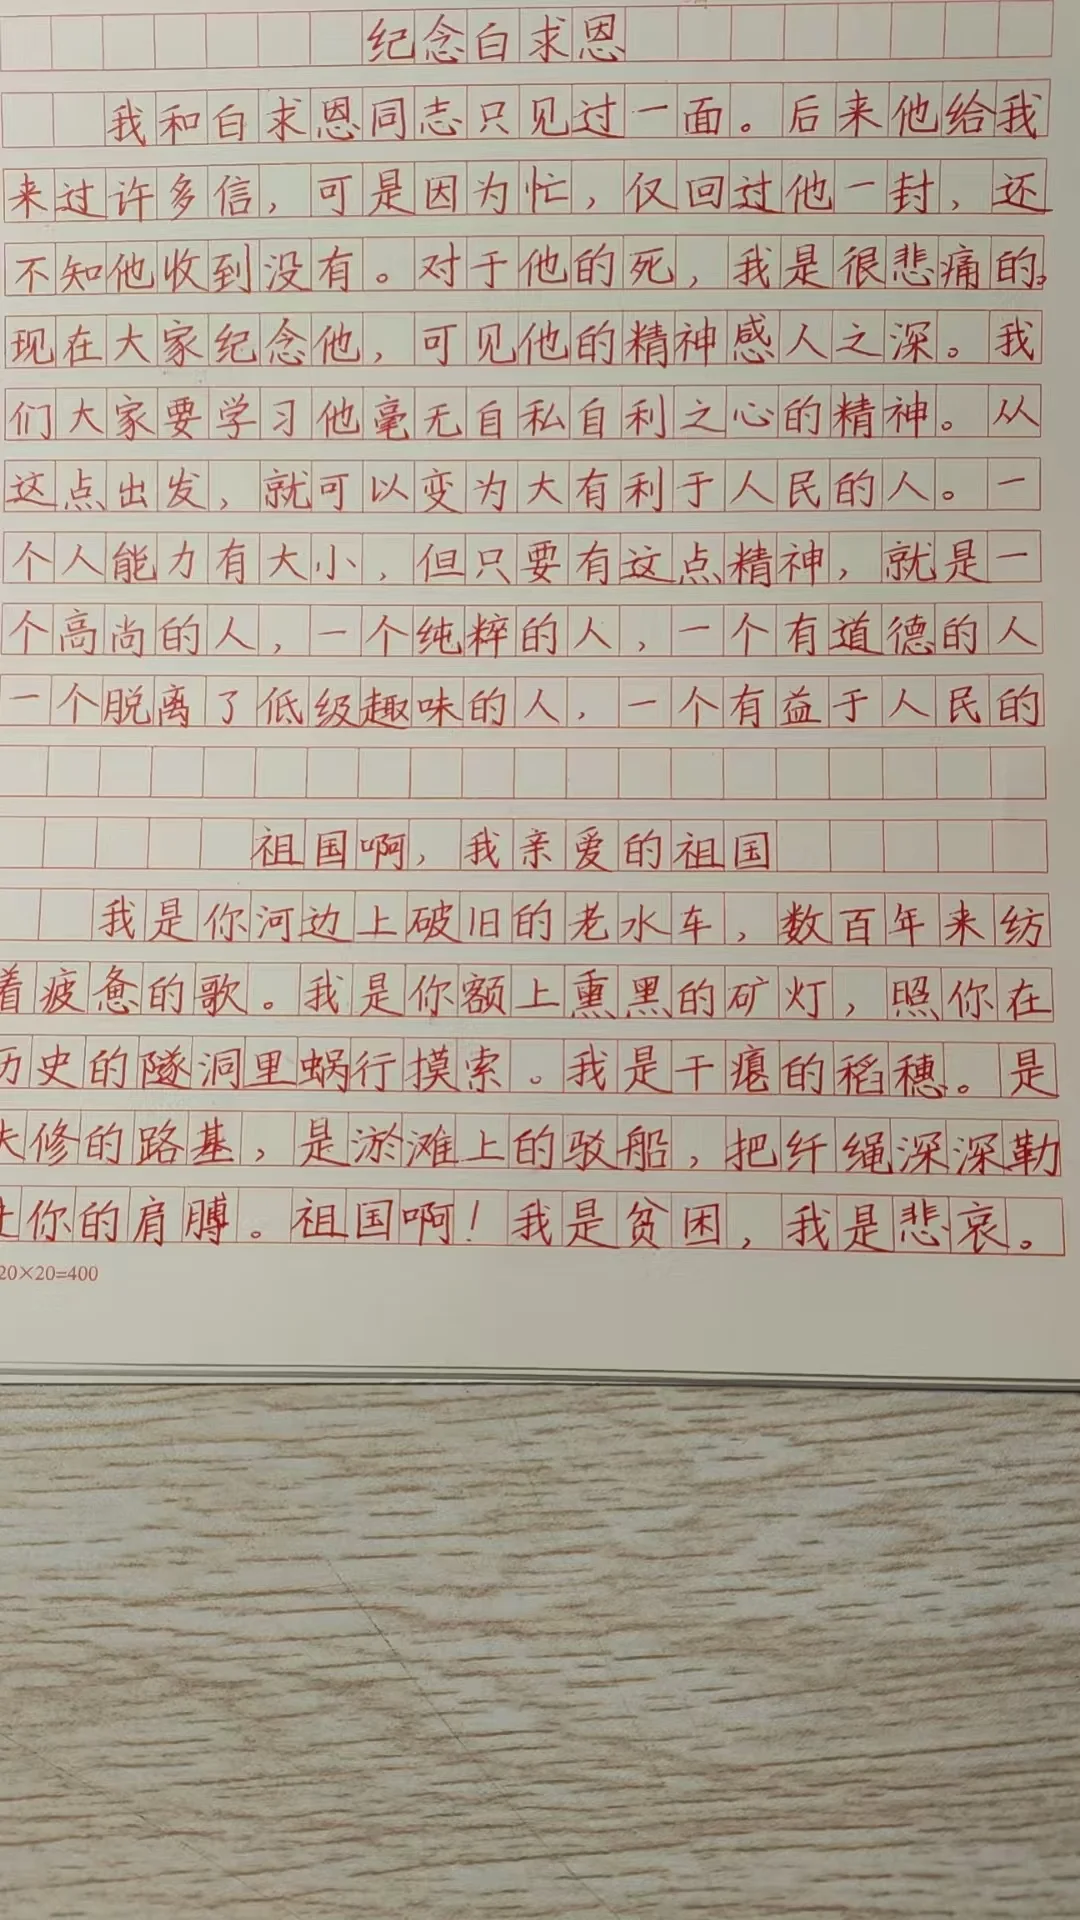 纪念白求恩
我和白求恩同志只见过一面。后来他给我
来过许多信，可是因为忙，仅回过他一封，还
不知他收到没有。对于他的死，我是很悲痛的。
现在大家纪念他，可见他的精神感人之深。我
们大家要学习他毫无自私自利之心的精神。从
这点出发，就可以变为大有利于人民的人。一
个人能力有大小，但只要有这点精神，就是一
个高尚的人，一个纯粹的人，一个有道德的人
一个脱离了低级趣味的人，一个有益于人民的
祖国啊，我亲爱的祖国
我是你河边上破旧的老水车，数百年来纺
着疲惫的歌。我是你额上熏黑的矿灯，照你在
历史的隧洞里蜗行摸索。我是干瘪的稻穗。是
失修的路基，是淤滩上的驳船，把纤绳深深勒
进你的肩膊。祖国啊！我是贫困，我是悲哀。
20×20=400